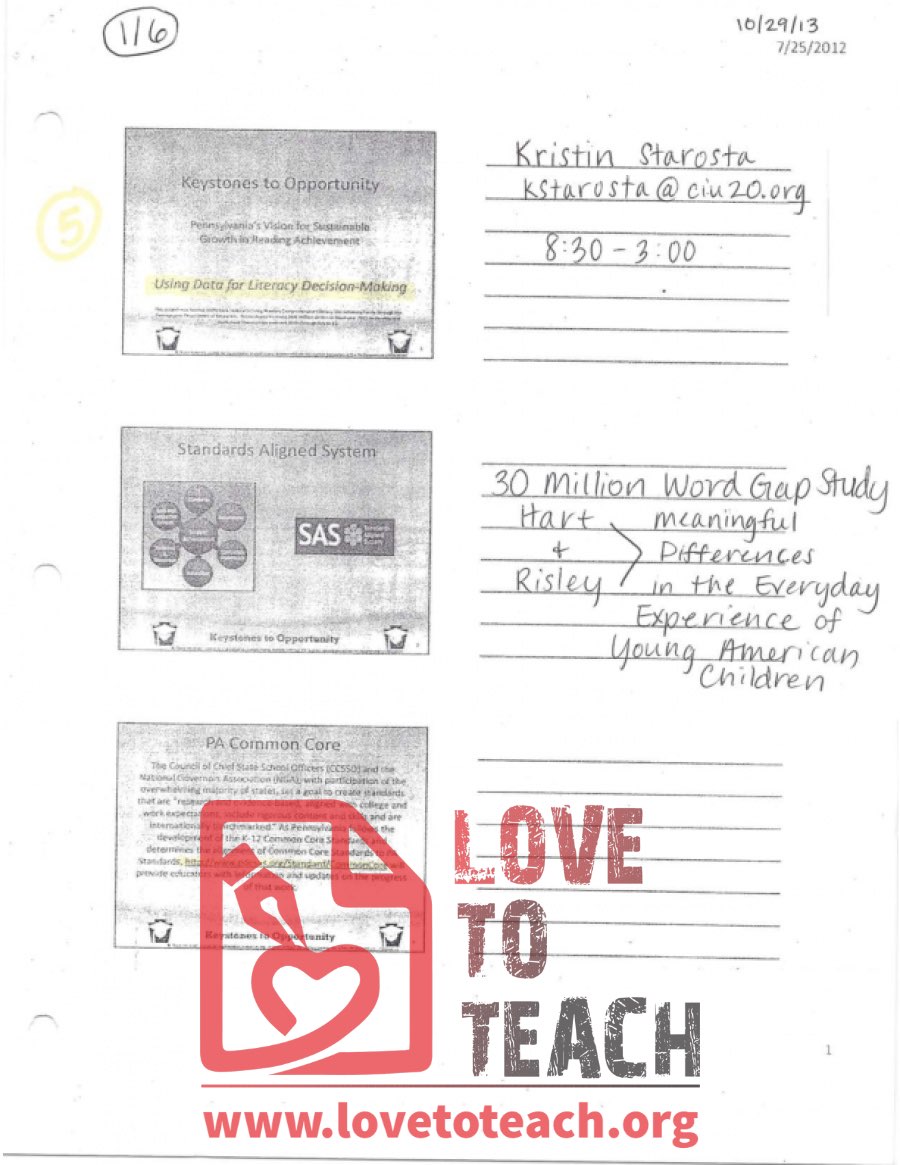 1/6
10/29/13
7/25/2012
5
Keystones to Opportunity
Pennsylvania's Vision for Sustainable
Growth in Reading Achievement
Using Data for Literacy Decision-Making
Kristin Starosta
kstarosta@ciu20.org
8:30 - 3:00
Standards Aligned System
SAS
Keystones to Opportunity
30 Million Word Gap Study
Hart
&
Risley
meaningful
Differences
in the Everyday
Experience of
Young American
Children
PA Common Core
The Council of Chief State School Officers (CCSSO) and the
National Governors Association (NGA), with participation of the
overwhelming majority of states, set a goal to create standards
that are "research and evidence based, aligned with college and
work expectations, include rigorous content and skills and are
internationally benchmarked." As Pennsylvania follows the
development of the K-12 Common Core Standards and
determines the alignment of Common Core Standards to PA
Standards, will
provide educators with information and updates on the progress
of that work.
Keystones to Opportunity
LOVE
TO
TEACH
www.lovetoteach.org
1